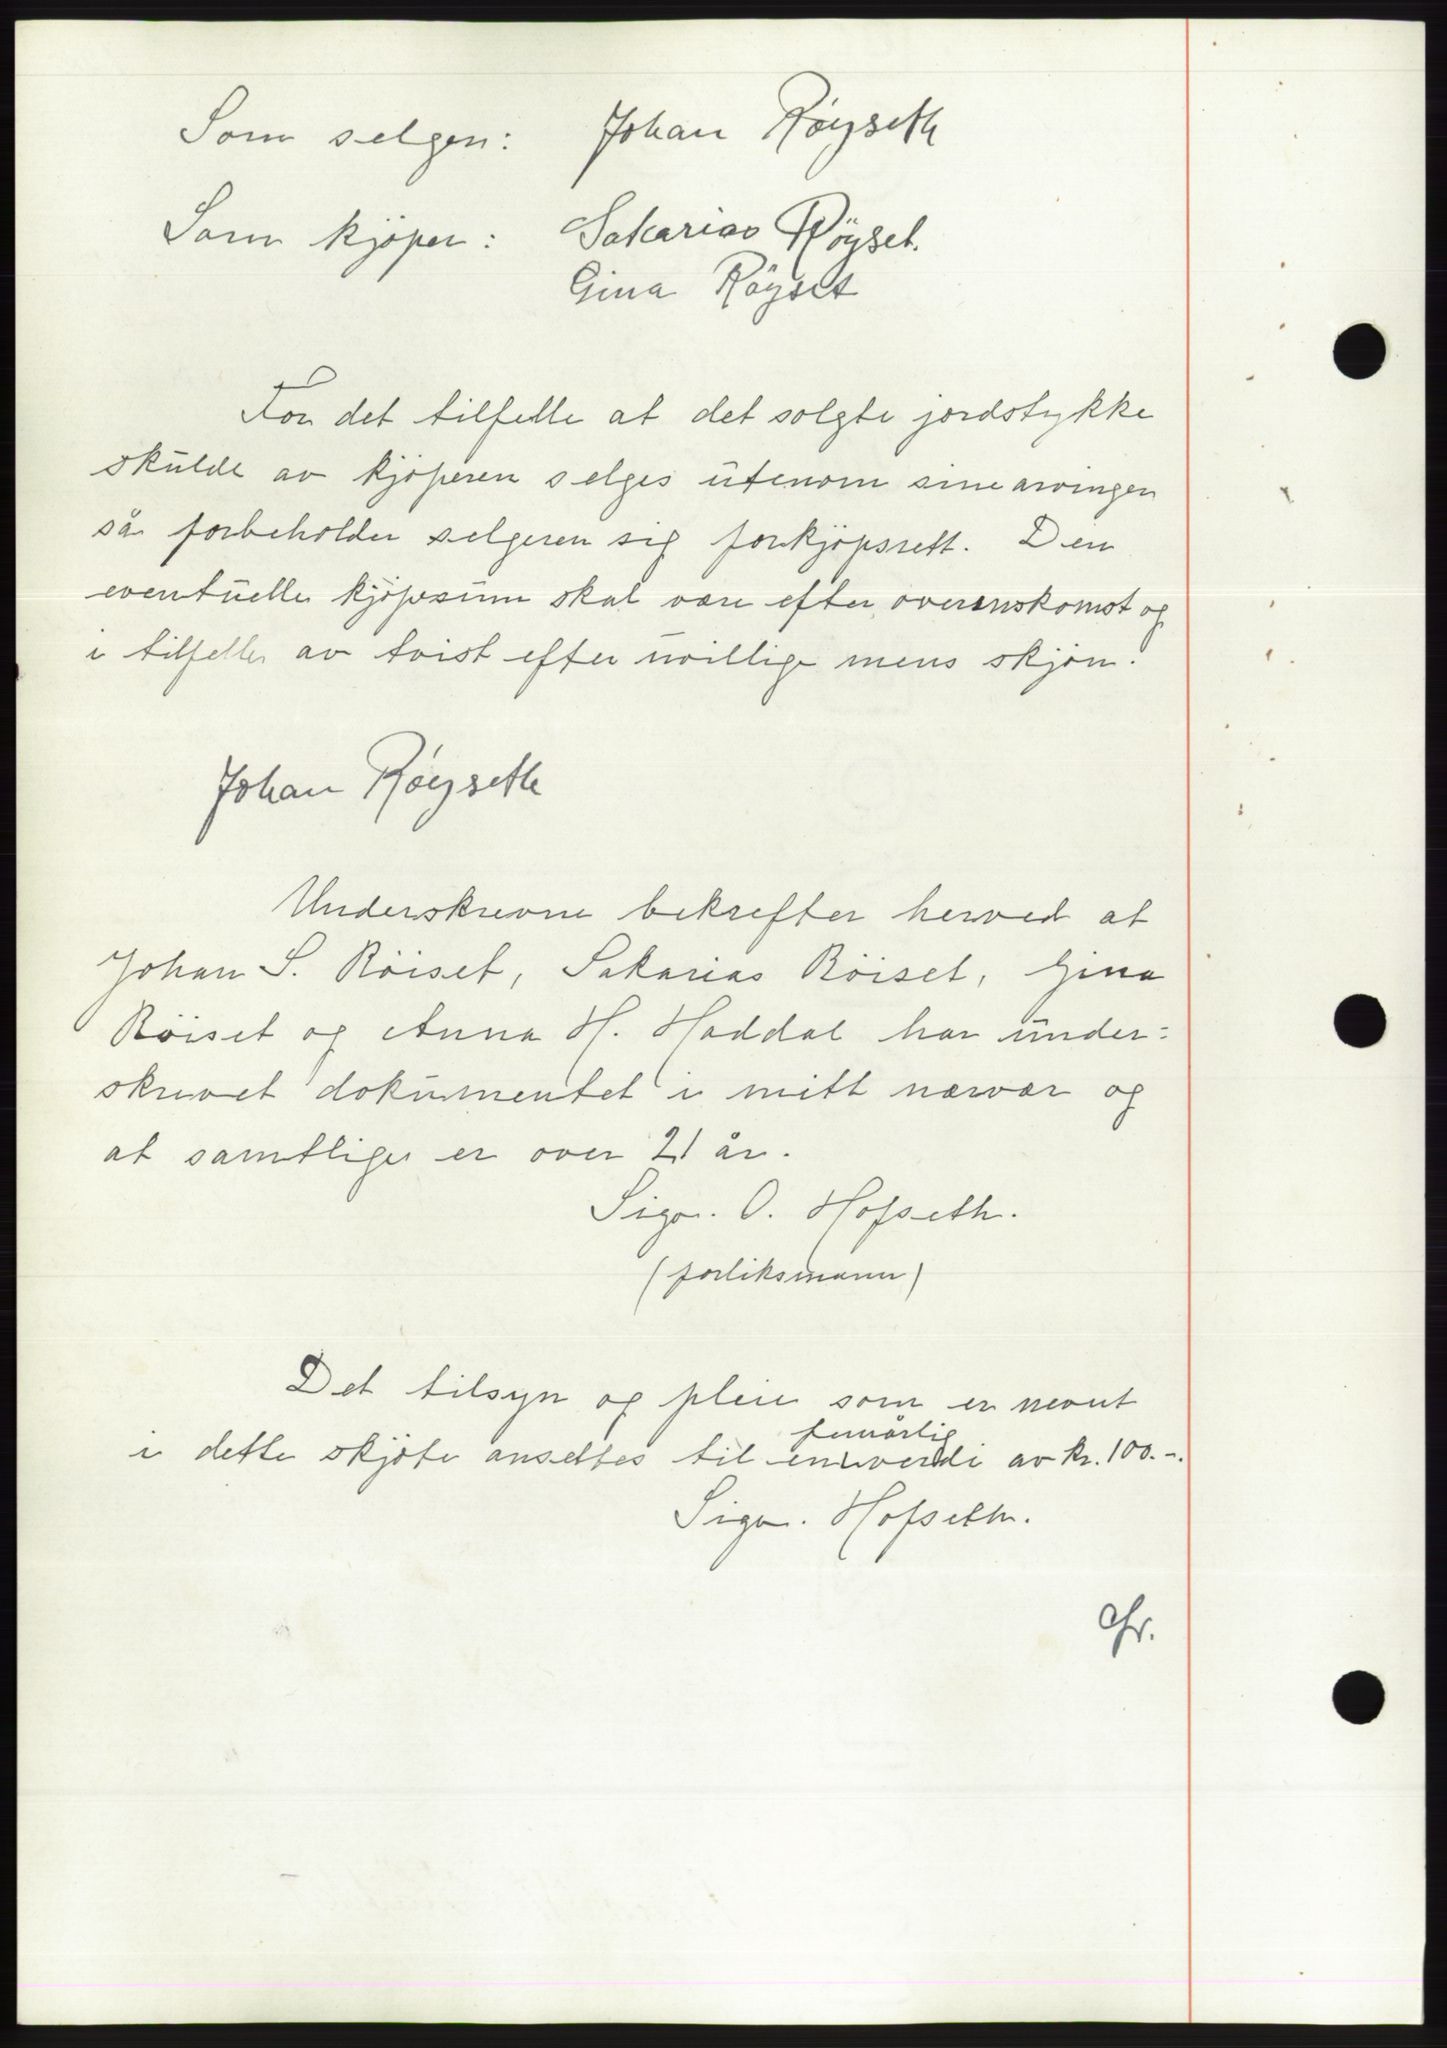 Som selger: Johan Röyseth
Som kjöper: Sakarias Röyset.
Gina Röyset
For det tilfelle at det solgte jordstykke
skulde av kjöperen selges utenom sine arvinger
så forbeholder selgeren sig forkjöpsrett. Den
eventuelle kjöpesum skal være efter overenskomst og
i tilfelle av tvist efter uvillige mens skjön.
Johan Röyseth
Underskrevne bekrefter herved at
Johan S. Röiset, Sakarias Röiset, Gina
Röiset og Anna H. Haddal har under=
skrevet dokumentet i mitt nærvær og
at samtlige er over 21 år.
Sign. O. Hofseth.
(forliksmann)
Det tilsyn og pleie som er nevnt
femårlig
i dette skjöte ansettes til en verdi av kr. 100.-.
Sign. Hofseth.